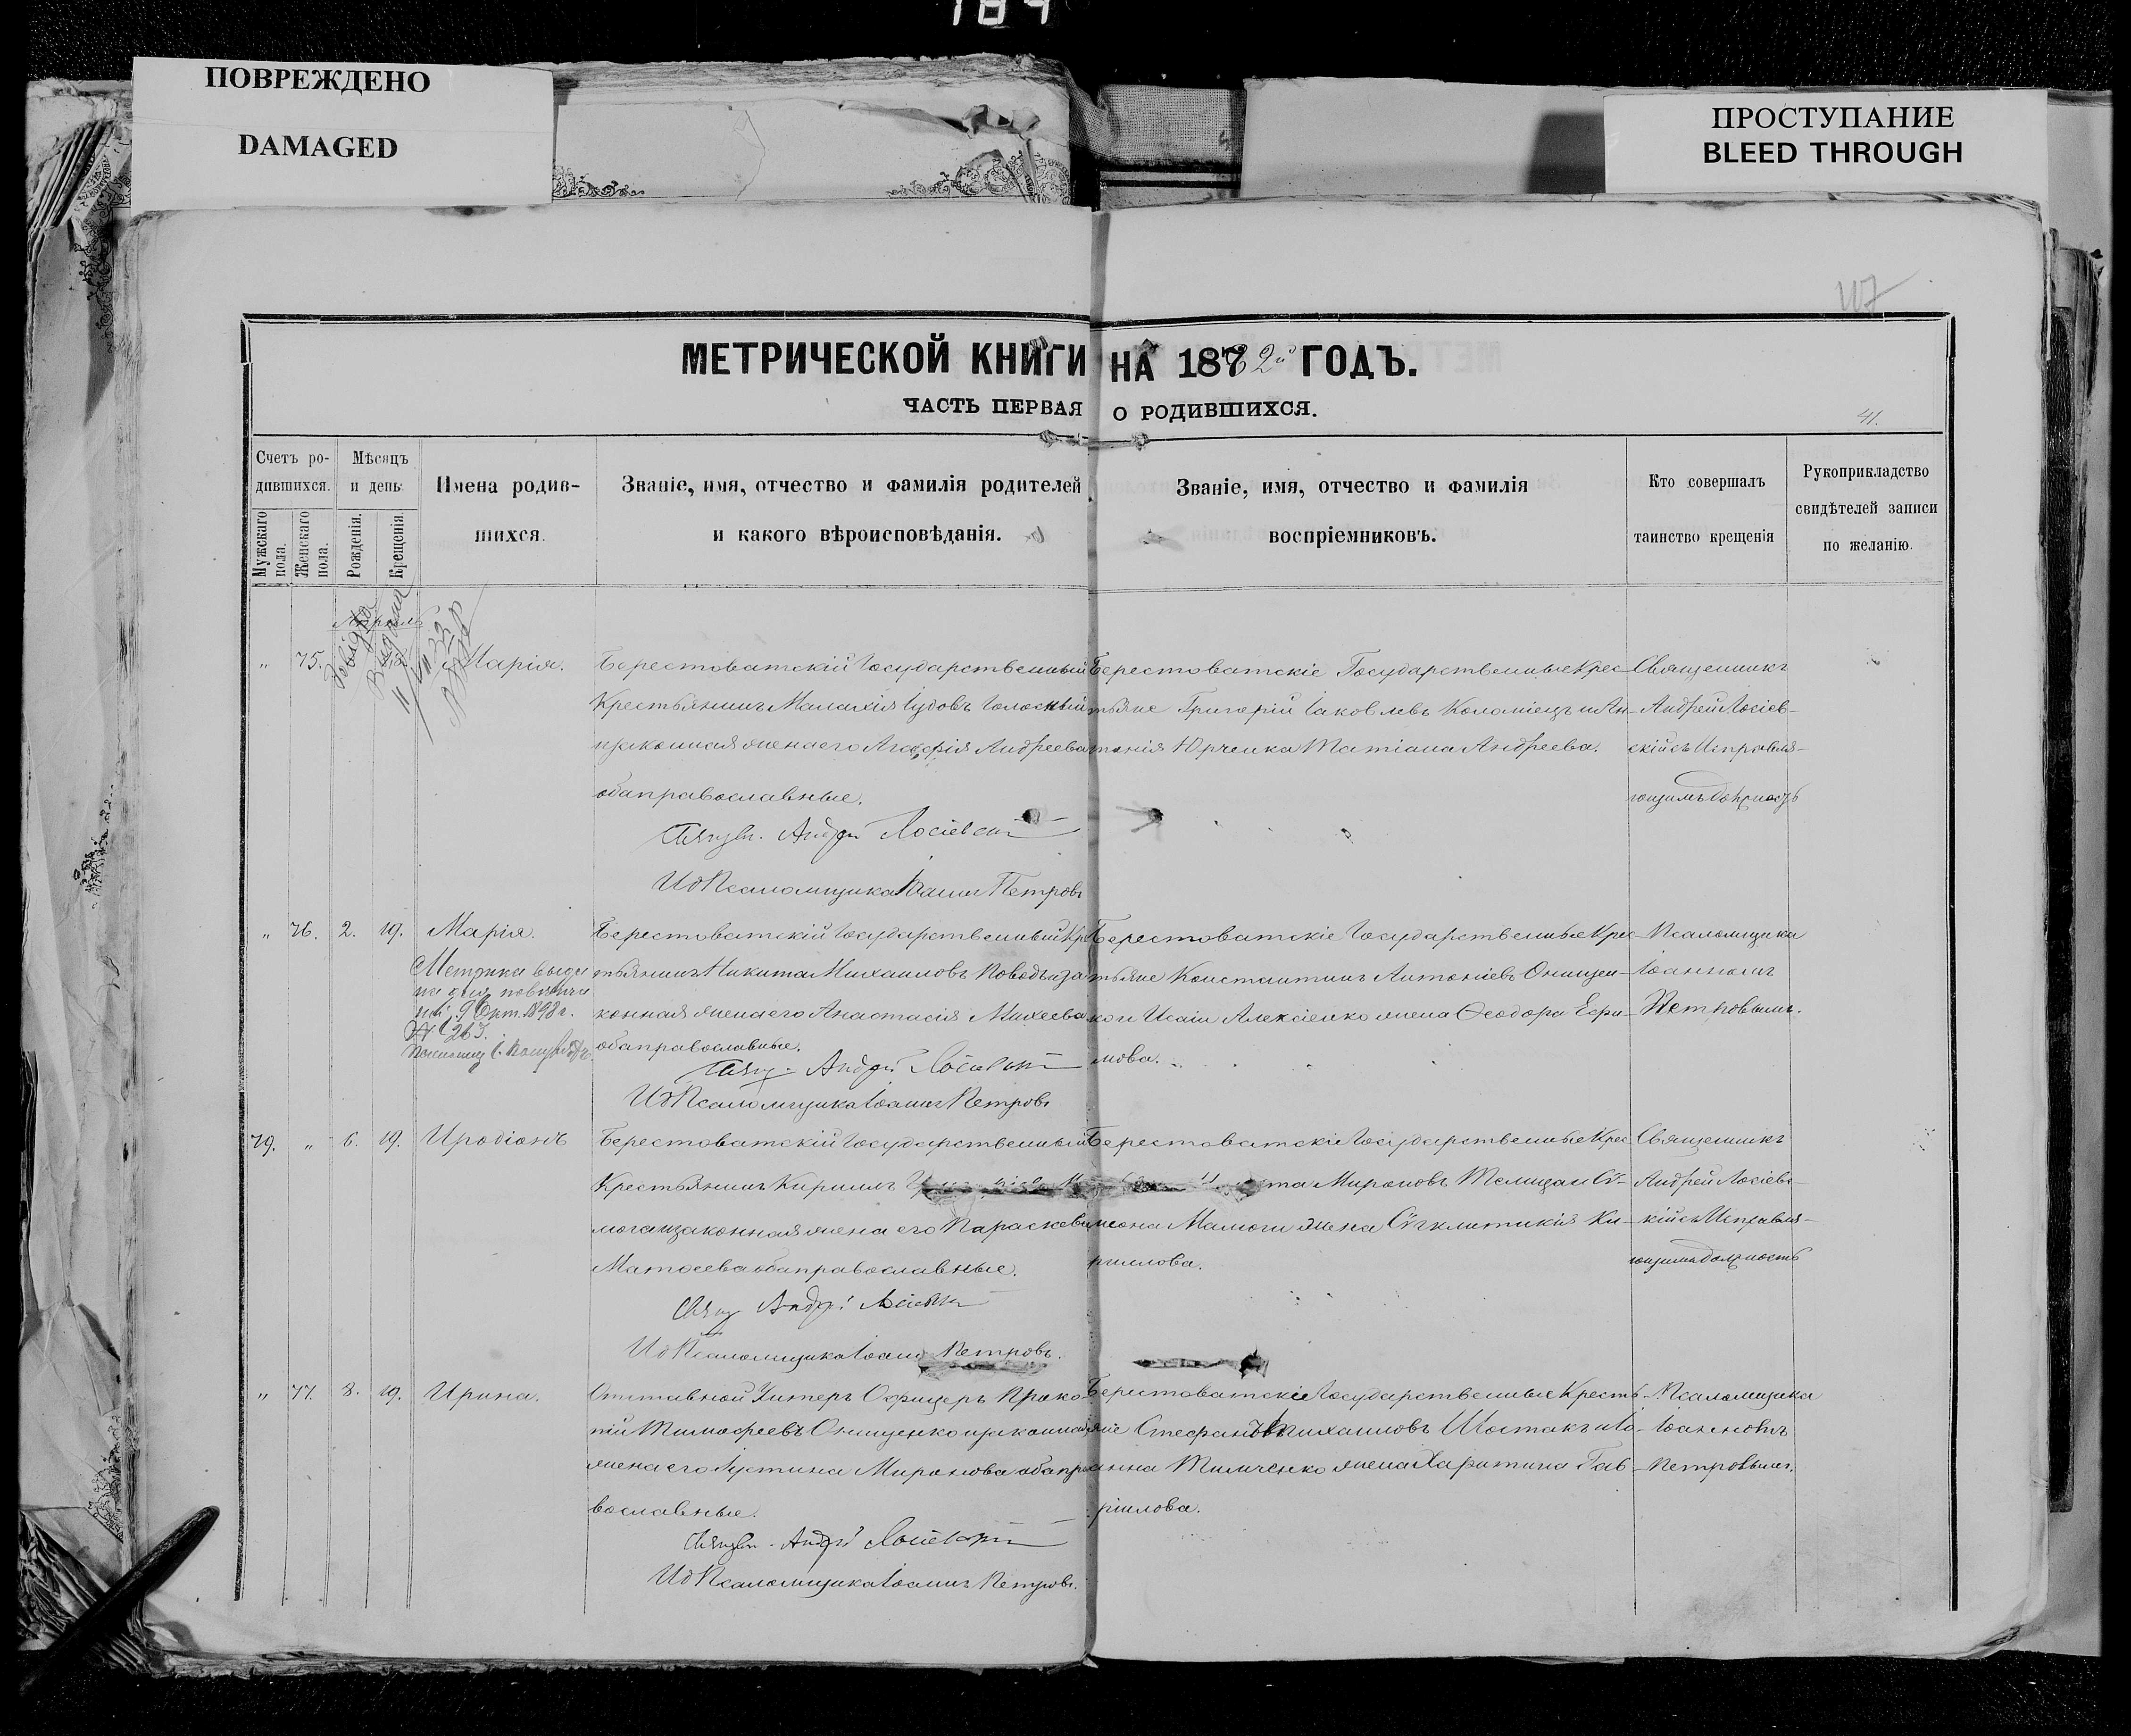 184
ПОВРЕЖДЕНО
DAMAGED
ПРОСТУПАНИЕ
BLEED THROUGH
117
МЕТРИЧЕСКОЙ КНИГИ НА 1882й ГОДЪ.
ЧАСТЬ ПЕРВАЯ О РОДИВШИХСЯ.
41.
Счетъ ро-
дившихся.
Мужскаго пола.
Женскаго пола.
Мѣсяцъ
и день.
Рожденія.
Крещенія.
Имена родив-
шихся.
Званіе, имя, отчество и фамилія родителей
и какого вѣроисповѣданія.
Званіе, имя, отчество и фамилія
воспріемниковъ.
Кто совершалъ
таинство крещенія
Рукоприкладство
свидѣтелей записи
по желанію.
Апрѣль
„ 75. Марія.
Берестоватскій Государственный
Крестьянинъ Малахія Іудовъ
изаконная жена его Агафія Андреева
оба православные.
Андрей Лосіевскій
ИдПсаломщика Іоаннъ Петровъ
Берестоватскіе Государственные Крес-
тьяне Григорій Іаковлевъ Коломіецъ и Ан-
тонія Юрченка Татіана Андреева.
Священникъ
Андрей Лосіев-
скій съ Исправля-
ющимъ должность
„ 76. 2. 19. Марія.
Метрика выда
на для
1898 г.
№ 263.
Берестоватскій Государственный Кре
тьянинъ Никита Михаиловъ иза
конная жена его Анастасія Михеева
оба православные.
Андрей Лосіевскій
ИдПсаломщика Іоаннъ Петровъ
Берестоватскіе Государственные Крес-
тьяне Константинъ Антоніевъ Онищен-
ко и Исаіи Алексіенко жена Ѳеодора Ефи-
мова.
Псаломщика
Іоанномъ
Петровымъ.
79. „ 6. 19. Иродіонъ
Берестоватскій Государственный
Крестьянинъ Кириллъ
законная жена его Параскева
оба православные.
Андрей
ИдПсаломщика Іоаннъ Петровъ.
Берестоватскіе Государственные Крес
та Мироновъ Телица и Сѵ-
меона Мамоги жена Сѵгклитикія Ки-
риллова.
Священникъ
Андрей Лосіевс-
кій съ Исправля-
ющимъ должность
„ 77. 8. 19. Ирина.
Отставной Унтеръ Офицеръ Проко-
пій Тимофеевъ Онищенко изаконная
жена его Іустина Миронова оба пра
вославные.
Андрей Лосіевскій
ИдПсаломщика Іоаннъ Петровъ.
Берестоватскіе Государственные Кресть-
яне Стефанъ Михаиловъ Шостакъ и Іо-
анна Тимченко жена Харитина Гав-
ріилова.
Псаломщика
Іоанномъ
Петровымъ.